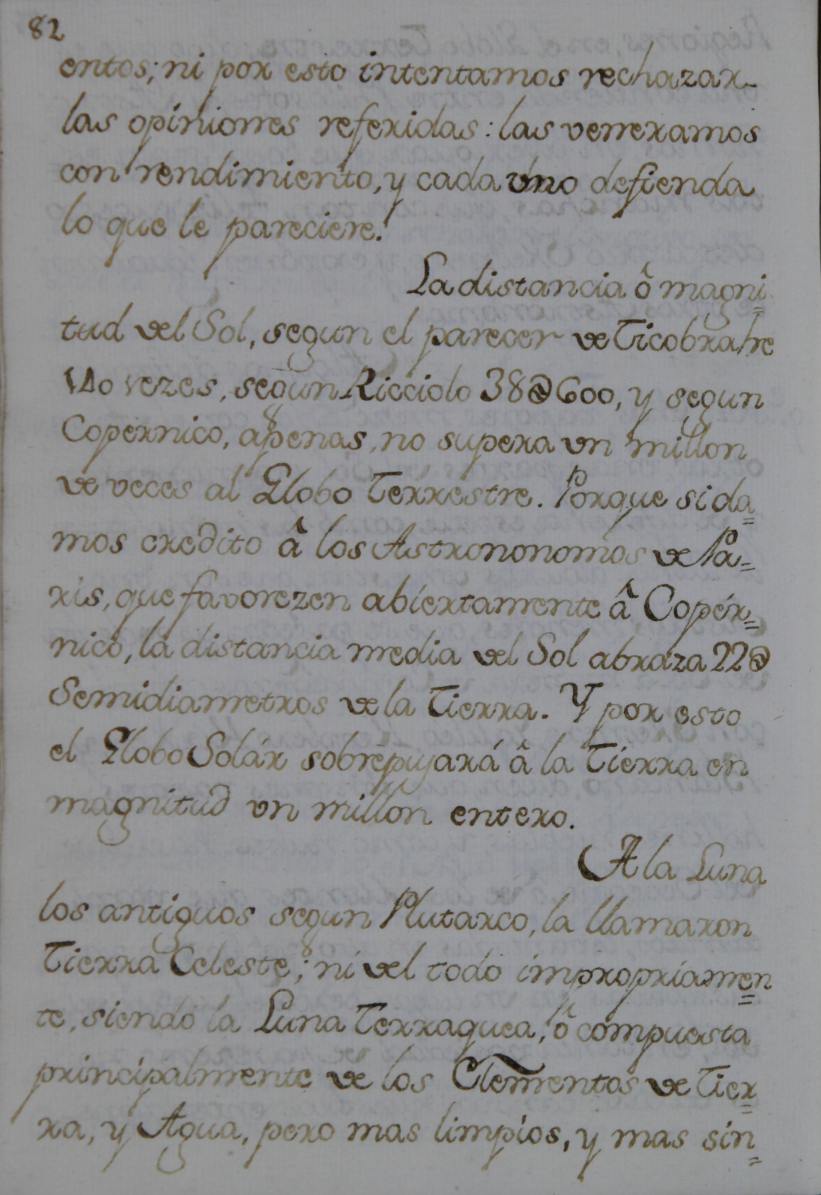 82
entos; ni por esto intentamos rechazar
las opiniones referidas: las venexamos
con rendimiento, y cada uno defienda
lo que le pareciere.
La distancia ô magni=
tud del Sol, segun el parecer de Ticobrahe
140 vezes, segun Ricciolo 38@600, y segun
Copernico, apenas, no supera un millon
de veces al Globo Terrestre. Porque si da=
mos credito â los Astrononomos de Pa=
ris, que favorezen abiertamente â Copér=
nico, la distancia media del Sol abraza 22@
Semidiametros de la Tierra. Y por esto
el Globo Solár sobrepujará â la Tierra en
magnitud un millon entero.
A la Luna
los antiguos segun Plutarco, la llamaron
Tierra Celeste; ni del todo impropriamen=
te, siendo la Luna Terraquea, ô compuesta
principalmente de los Elementos de Tier=
ra, y Agua, pero mas limpios, y mas sin=